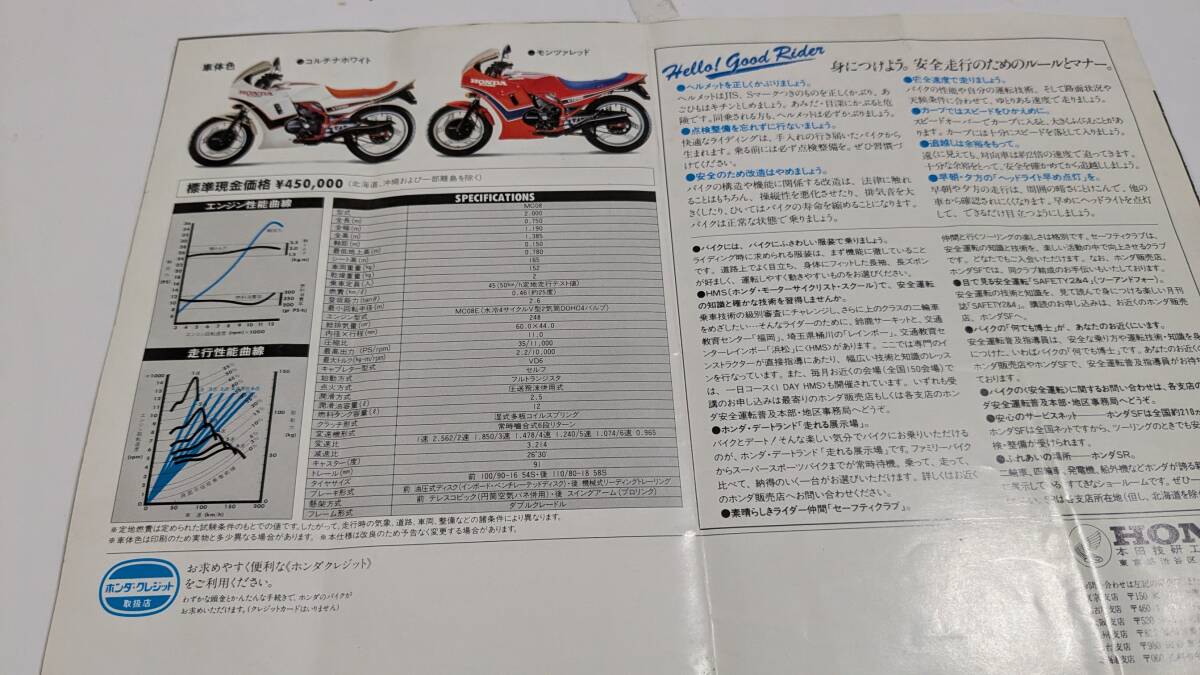 車体色
●コルチナホワイト
●モンツァレッド
標準現金価格 ¥450,000 (北海道、沖縄および一部離島を除く)
エンジン性能曲線
走行性能曲線
SPECIFICATIONS
型式 MC08
全長(m) 2.000
全幅(m) 0.750
全高(m) 1.190
軸距(m) 1.385
最低地上高(m) 0.150
シート高(m) 0.780
車両重量(kg) 165
乾燥重量(kg) 152
乗車定員(人) 2
燃費(km/ℓ) 45(50km/h定地走行テスト値)
登坂能力(tanθ) 0.46(約25度)
最小回転半径(m) 2.6
エンジン型式 MC08E(水冷4サイクルV型2気筒DOHC4バルブ)
総排気量(cm³) 248
内径×行程(mm) 60.0×44.0
圧縮比 11.0
最高出力(PS/rpm) 35/11,000
最大トルク(kg-m/rpm) 2.2/10,000
キャブレター型式 VD6
始動方式 セルフ
点火方式 フルトランジスタ
潤滑方式 圧送飛沫併用式
潤滑油容量(ℓ) 2.5
燃料タンク容量(ℓ) 12
クラッチ形式 湿式多板コイルスプリング
変速機形式 常時噛合式6段リターン
変速比 1速 2.562/2速 1.850/3速 1.478/4速 1.240/5速 1.074/6速 0.965
減速比 3.214
キャスター(度) 26°30′
トレール(mm) 91
タイヤサイズ 前 100/90-16 54S・後 110/80-18 58S
ブレーキ形式 前 油圧式ディスク(インボード・ベンチレーテッドディスク)・後 機械式リーディングトレーリング
懸架方式 前 テレスコピック(円筒空気バネ併用)・後 スイングアーム(プロリンク)
フレーム形式 ダブルクレードル
※定地燃費は定められた試験条件のもとでの値です。したがって、走行時の気象、道路、車両、整備などの諸条件により異なります。
※車体色は印刷のため実物と多少異なる場合があります。 ※本仕様は改良のため予告なく変更する場合があります。
ホンダ・クレジット
取扱店
お求めやすく便利な《ホンダクレジット》
をご利用ください。
わずかな頭金とかんたんな手続きで、ホンダのバイクが
お求めいただけます。(クレジットカードはいりません)
Hello! Good Rider
身につけよう。安全走行のためのルールとマナー。
●ヘルメットを正しくかぶりましょう。
ヘルメットはJIS、Sマークつきのものを正しくかぶり、あ
ごひもはキチンとしめましょう。あみだ・目深にかぶると危
険です。同乗される方も、ヘルメットは必ずかぶりましょう。
●点検整備を忘れずに行ないましょう。
快適なライディングは、手入れの行き届いたバイクから
生まれます。乗る前には必ず点検整備を。ぜひ習慣づ
けてください。
●安全のため改造はやめましょう。
バイクの構造や機能に関係する改造は、法律に触れ
ることはもちろん、操縦性を悪化させたり、排気音を大
きくしたり、ひいてはバイクの寿命を縮めることになります。
バイクは正常な状態で乗りましょう。
●安全速度で走りましょう。
バイクの性能や自分の運転技術、そして路面状況や
天候条件に合わせて、ゆとりある速度で走りましょう。
●カーブではスピードをひかえめに。
スピードオーバーでカーブに入ると、大きくふくらむことがあ
ります。カーブには十分にスピードを落として入りましょう。
●追越しは余裕をもって。
遠くに見えても、対向車は約2倍の速度で迫ってきます。
十分な余裕をとって、安全を確かめてから追越しましょう。
●早朝・夕方の「ヘッドライト早め点灯」を。
早朝や夕方の走行は、周囲の暗さにとけこんで、他の
車から確認されにくくなります。早めにヘッドライトを点灯
して、できるだけ目立つようにしましょう。
●バイクには、バイクにふさわしい服装で乗りましょう。
ライディング時に求められる服装は、まず機能に徹していること
です。道路上でよく目立ち、身体にフィットした長袖、長ズボン
が好ましく、運転しやすく動きやすいものをお選びください。
●HMS(ホンダ・モーターサイクリスト・スクール)で、安全運転
の知識と確かな技術を習得しませんか。
乗車技術の級別審査にチャレンジし、さらに上のクラスの二輪車
をめざしたい…そんなライダーのために、鈴鹿サーキットと、交通
教育センター「福岡」、埼玉県桶川の「レインボー」、交通教育セ
ンターレインボー「浜松」に《HMS》があります。ここでは専門のイ
ンストラクターが直接指導にあたり、幅広い技術と知識のレッス
ンを行なっています。また、毎月お近くの会場(全国150会場)で
は、一日コース《1 DAY HMS》も開催されています。いずれも受
講のお申し込みは最寄りのホンダ販売店もしくは各支店のホン
ダ安全運転普及本部・地区事務局へどうぞ。
●ホンダ・デートランド「走れる展示場」。
バイクとデート!そんな楽しい気分でバイクにお乗りいただける
のが、ホンダ・デートランド「走れる展示場」です。ファミリーバイク
からスーパースポーツバイクまでが常時待機。乗って、走って、
比べて、納得のいく一台がお選びいただけます。詳しくはお近く
のホンダ販売店へお問い合わせください。
●素晴らしきライダー仲間「セーフティクラブ」。
仲間と行くツーリングの楽しさは格別です。セーフティクラブは、
安全運転の知識と技術を、楽しい活動の中で向上させるクラブ
です。どなたでもご入会いただけます。なお、ホンダ販売店、
ホンダSFでは、同クラブ結成のお手伝いもいたしております。
●目で見る安全運転「SAFETY2&4」(ツーアンドフォー)。
安全運転の技術と知識を、見て読んで身につける楽しい月刊
誌「SAFETY2&4」。購読のお申し込みは、お近くのホンダ販売
店、ホンダSFへ。
●バイクの「何でも博士」が、あなたのお近くにいます。
安全運転普及指導員は、安全な乗り方や運転技術・知識を身
につけた、いわばバイクの「何でも博士」です。あなたのお近く
ホンダ販売店やホンダSFで、安全運転普及指導員がお待
ております。
●バイクの《安全運転》に関するお問い合わせは、各支店の
ダ安全運転普及本部・地区事務局へどうぞ。
●安心のサービスネット――ホンダSFは全国約210カ
ホンダSFは全国ネットですから、ツーリングのときでも安
検・整備が受けられます。
●ふれあいの場所――ホンダSR。
二輪車、四輪車、発電機、船外機などホンダが誇る
HON
本田技研工
東京都渋谷区
支店 〒150
支店 〒460
支店 〒520
支店 〒980
支店 〒060